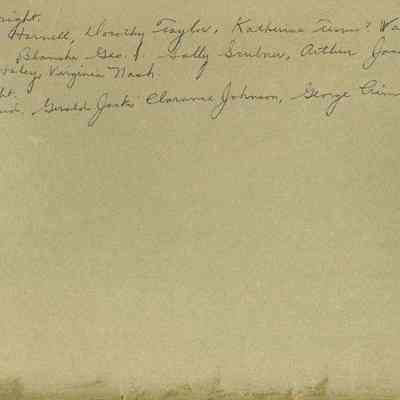 right.
Harnell, Dorothy Taylor, Katherine Wa
Blanche Geo. Sally Scribner, Arthur Jac
Virginia Nash
ht.
Gerald Jacks Clarance Johnson, George Crim